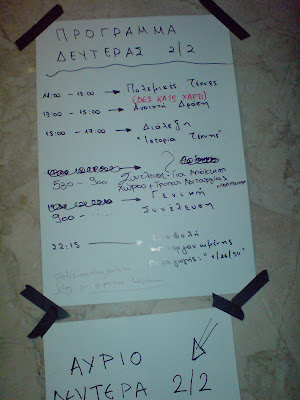 ΠΡΟΓΡΑΜΜΑ
ΔΕΥΤΕΡΑΣ 2/2
11:00 - 13:00 → Πολεμικές Τέχνες
(ΔΕΣ ΚΑΤΩ ΧΑΡΤΙ)
13:00 - 15:00 → Ανοιχτή Δράση
15:00 - 17:00 → Διάλεξη
"Ιστορία Τέχνης"
530 - 900 Συνέλευση για Απόκτηση
Χώρου + Τρόπος Λειτουργίας
→ Γενική
900 - ..... Συνέλευση
22:15 → Προβολή
"1/26/94"
ΑΥΡΙΟ
ΔΕΥΤΕΡΑ 2/2